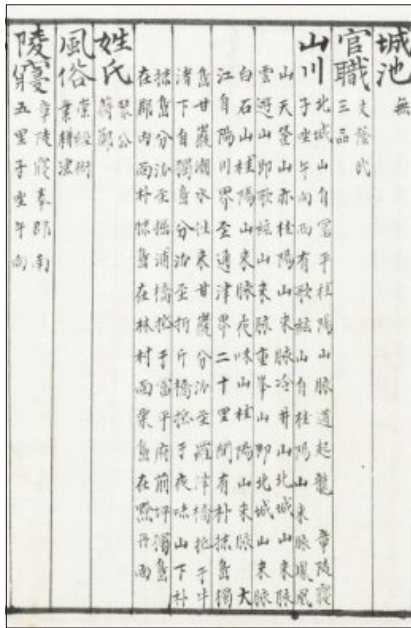 城池 無
官職 文蔭武
三品
山川 北城山自富平桂陽山脉道起龍 章陵寢
子坐午向西有歌絃山自桂陽山來脉鳳凰
山天登山亦桂陽山來脉冷井山北城山來脉
雲遊山即歌絃山來脉重峯山即北城山來脉
白石山桂陽山來脉夜味山桂陽山來脉 大
江自陽川界至通津界二十里間有朴抹島獨
島甘巖潮水往來甘巖分派至羅津橋拖于牛
渚下自獨島分派至折斤橋拖于夜味山下朴
抹島分派至掘浦橋拖于富平府前坪獨島
在郡內面朴抹島在林村面栗島在黔丹面
姓氏 琴公
蔣鄭
風俗 崇術
業耕漁
陵寢 章陵寢奉郡南
五里子坐午向